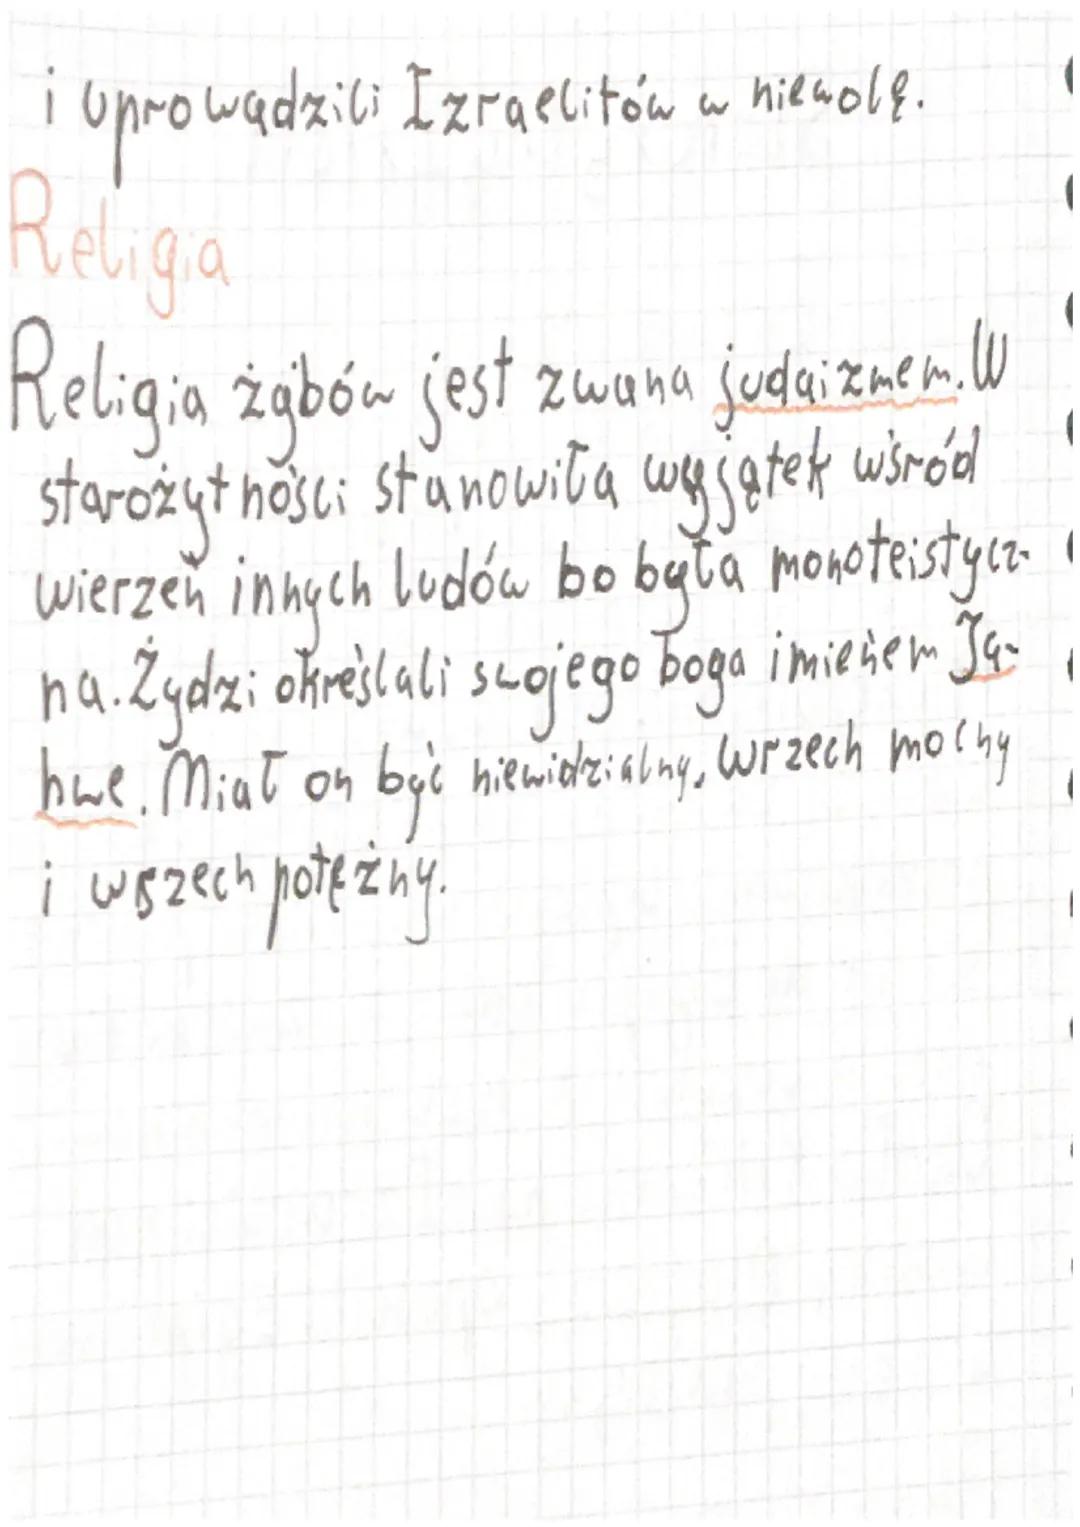 i uprowadzili Izraelitów w niewolę.
Religia
Religia żybów jest zwana judaizmem. W
starożytności stanowiła wyjątek wśród
wierzeń innych ludów bo była monoteistycz-
na. Żydzi określali swojego boga imieniem Ja-
hwe. Miał on być niewidzialny, wrzech mocny
i wszech potężny.